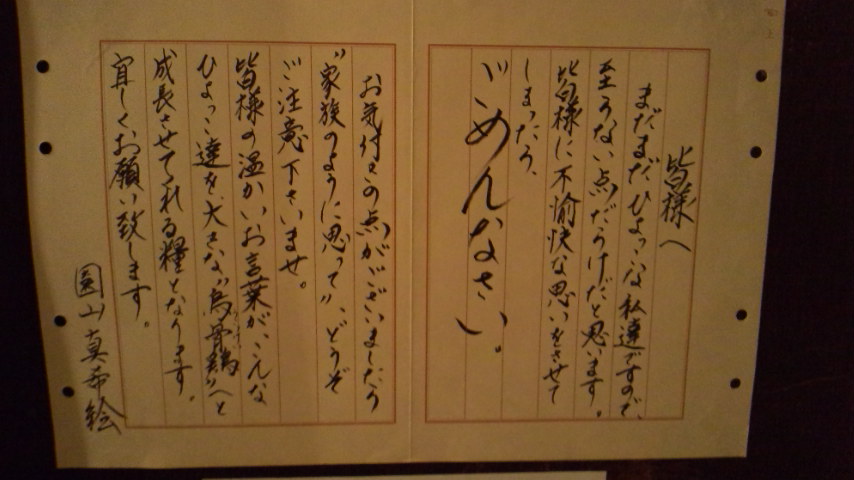 皆様へ
まだまだひよっこな私達ですので、
至らない点だらけだと思います。
皆様に不愉快な思いをさせて
しまったら、
ごめんなさい。
お気付きの点がございましたら
"家族のように思って"、どうぞ
ご注意下さいませ。
皆様の温かいお言葉が、こんな
ひよっこ達を、大きな"烏骨鶏"へと
成長させてくれる糧となります。
宜しくお願い致します。
園山真希絵